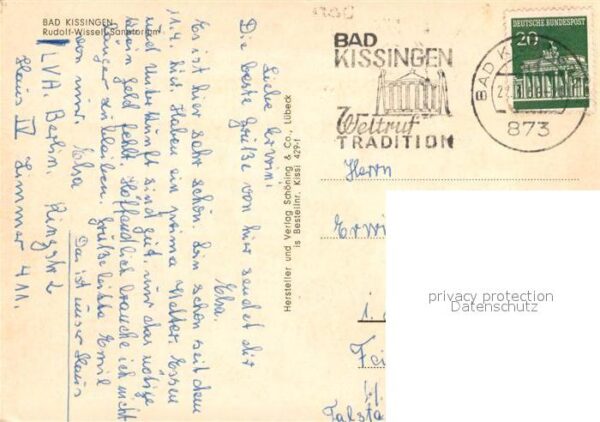 BAD KISSINGEN
Rudolf-Wissell-Sanatorium
BAD
KISSINGEN
Weltruf
TRADITION
DEUTSCHE BUNDESPOST
20
BAD K
873
Liebe Erwin!
Die beste Grüße von hier sendet dir
Elsa.
Es ist hier sehr schön. Bin schon seit dem
11.4. hier. Haben ein prima Wetter. Essen
und Unterkunft sind gut, nur das nötige
Klein geld fehlt. Hoffentlich brauche ich nicht
länger zu bleiben. Grüße bitte Emil
von mir. Elsa
Das ist unser Haus
LVA. Berlin. Ringstr 2
Haus IV Zimmer 411.
Hersteller und Verlag Schöning & Co., Lübeck
is Bestellnr. Kissi 429-1
Herrn
Erwi
privacy protection
Datenschutz